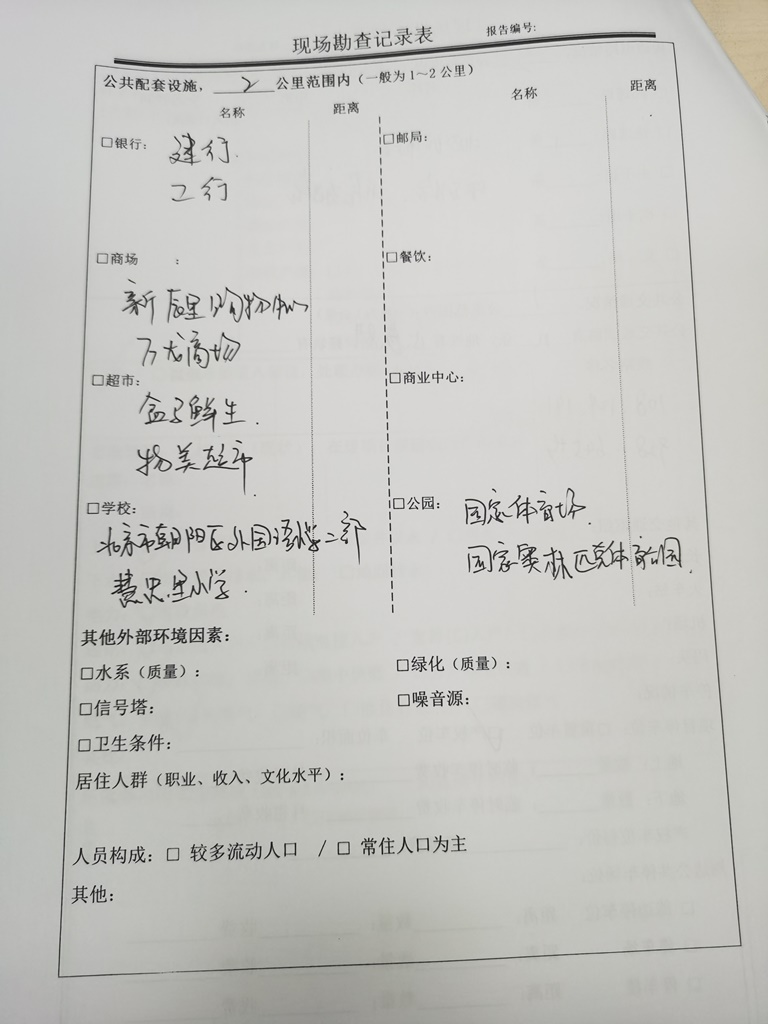 现场勘查记录表
报告编号:
公共配套设施，2公里范围内（一般为1～2公里）
名称 距离 名称 距离
□银行： 建行.
工行
□邮局：
□商场 ：
新辰里购物中心
万龙商场
□餐饮：
□超市：
盒马鲜生.
物美超市
□商业中心：
□学校：
北京市朝阳区外国语小学二部
慧忠里小学.
□公园： 国家体育场.
国家奥林匹克体育公园.
其他外部环境因素：
□水系（质量）： □绿化（质量）：
□信号塔： □噪音源：
□卫生条件：
居住人群（职业、收入、文化水平）：
人员构成：□ 较多流动人口 / □ 常住人口为主
其他：